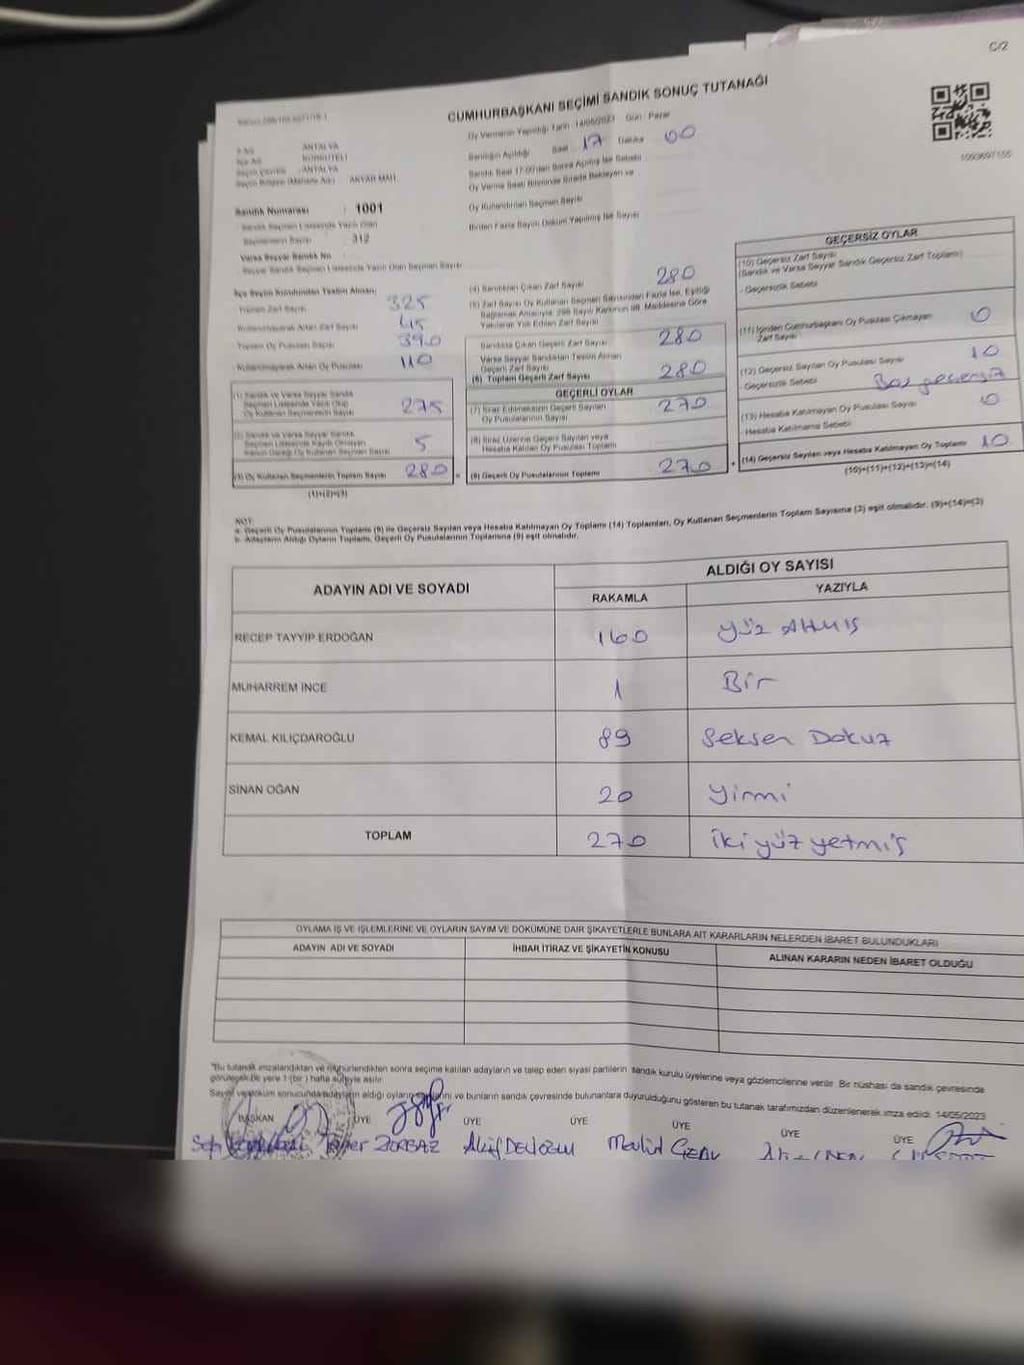 C/2
CUMHURBAŞKANI SEÇİMİ SANDIK SONUÇ TUTANAĞI
Oy Vermenin Yapıldığı Tarih : 14/05/2023 Gün : Pazar
ANTALYA
KORKUTELİ
ANTALYA
Sandığın Açıldığı Saat 17 Dakika 00
Sandık Saat 17:00'den Sonra Açılmış İse Sebebi
Oy Verme Saati Bitiminde Sırada Bekleyen ve
Oy Kullandırılan Seçmen Sayısı
Birden Fazla Sayım Döküm Yapılmış İse Sayısı
Sandık Numarası : 1001
Sandık Seçmen Listesinde Yazılı Olan
Seçmenlerin Sayısı 312
Varsa Seyyar Sandık No
Seyyar Sandık Seçmen Listesinde Yazılı Olan Seçmen Sayısı
İlçe Seçim Kurulundan Teslim Alınan;
325
Kullanılmayarak Artan Zarf Sayısı 45
Toplam Oy Pusulası Sayısı 390
Kullanılmayarak Artan Oy Pusulası 110
(1) Sandık ve Varsa Seyyar Sandık
Seçmen Listesinde Yazılı Olup
Oy Kullanan Seçmenlerin Sayısı 275
(2) Sandık ve Varsa Seyyar Sandık
Seçmen Listesinde Kayıtlı Olmayan
Kanun Gereği Oy Kullanan Seçmen Sayısı 5
(3) Oy Kullanan Seçmenlerin Toplam Sayısı 280
(1)+(2)=(3)
(4) Sandıktan Çıkan Zarf Sayısı 280
(5) Zarf Sayısı Oy Kullanan Seçmen Sayısından Fazla İse, Eşitliği
Sağlamak Amacıyla, 298 Sayılı Kanunun 98. Maddesine Göre
Yakılarak Yok Edilen Zarf Sayısı
Sandıkta Çıkan Geçerli Zarf Sayısı 280
Varsa Seyyar Sandıktan Teslim Alınan
Geçerli Zarf Sayısı
(6) Toplam Geçerli Zarf Sayısı 280
GEÇERLİ OYLAR
(7) İtiraz Edilmeksizin Geçerli Sayılan
Oy Pusulalarının Sayısı 270
(8) İtiraz Üzerine Geçerli Sayılan veya
Hesaba Katılan Oy Pusulası Toplamı
(9) Geçerli Oy Pusulalarının Toplamı 270
GEÇERSİZ OYLAR
(10) Geçersiz Zarf Sayısı
(Sandık ve Varsa Seyyar Sandık Geçersiz Zarf Toplamı)
- Geçersizlik Sebebi
(11) İçinden Cumhurbaşkanı Oy Pusulası Çıkmayan
Zarf Sayısı 0
(12) Geçersiz Sayılan Oy Pusulası Sayısı 10
- Geçersizlik Sebebi
(13) Hesaba Katılmayan Oy Pusulası Sayısı 0
- Hesaba Katılmama Sebebi
(14) Geçersiz Sayılan veya Hesaba Katılmayan Oy Toplamı 10
(10)+(11)+(12)+(13)=(14)
NOT:
a- Geçerli Oy Pusulalarının Toplamı (9) ile Geçersiz Sayılan veya Hesaba Katılmayan Oy Toplamı (14) Toplamları, Oy Kullanan Seçmenlerin Toplam Sayısına (3) eşit olmalıdır. (9)+(14)=(3)
b- Adayların Aldığı Oyların Toplamı, Geçerli Oy Pusulalarının Toplamına (9) eşit olmalıdır.
ADAYIN ADI VE SOYADI ALDIĞI OY SAYISI
RAKAMLA YAZIYLA
RECEP TAYYİP ERDOĞAN 160 Yüz Altmış
MUHARREM İNCE 1 Bir
KEMAL KILIÇDAROĞLU 89 Seksen Dokuz
SİNAN OĞAN 20 Yirmi
TOPLAM 270 İki yüz yetmiş
OYLAMA İŞ VE İŞLEMLERİNE VE OYLARIN SAYIM VE DÖKÜMÜNE DAİR ŞİKAYETLERLE BUNLARA AİT KARARLARIN NELERDEN İBARET BULUNDUKLARI
ADAYIN ADI VE SOYADI İHBAR İTİRAZ VE ŞİKAYETİN KONUSU ALINAN KARARIN NEDEN İBARET OLDUĞU
"Bu tutanak imzalandıktan ve mühürlendikten sonra seçime katılan adayların ve talep eden siyasi partilerin sandık kurulu üyelerine veya gözlemcilerine verilir. Bir nüshası da sandık çevresinde
görülecek bir yere 1 (bir) hafta süreyle asılır.
Sayım ve döküm sonucunda adayların aldığı oyların sayısını ve bunların sandık çevresinde bulunanlara duyurulduğunu gösteren bu tutanak tarafımızdan düzenlenerek imza edildi. 14/05/2023
BAŞKAN ÜYE ÜYE ÜYE ÜYE ÜYE ÜYE
ZORBAZ